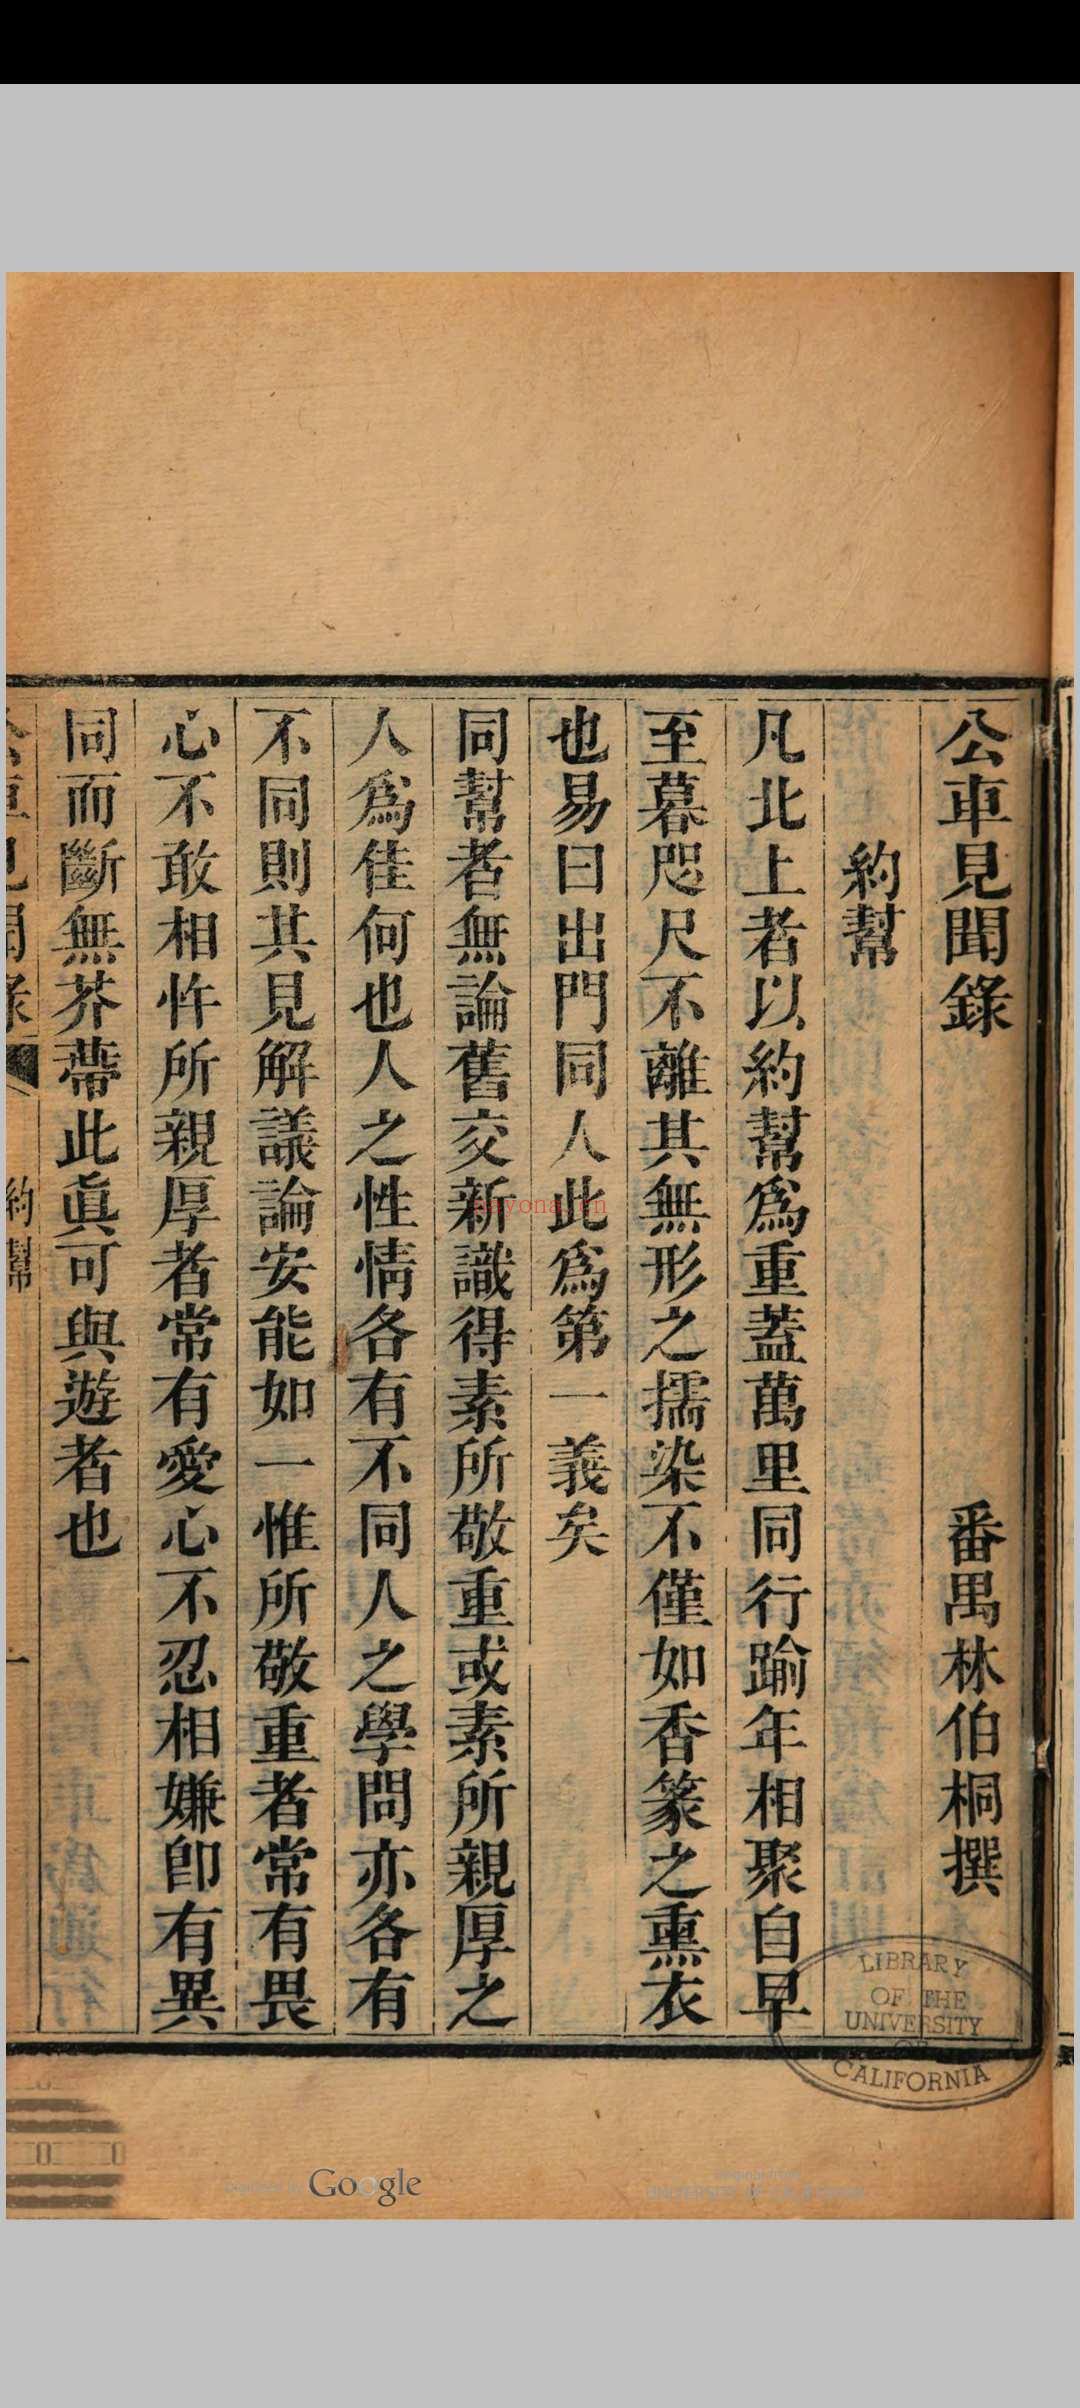 公車見聞錄
番禺林伯桐撰
約幫
凡北上者以約幫爲重蓋萬里同行踰年相聚自早
至暮咫尺不離其無形之擩染不僅如香篆之熏衣
也易曰出門同人此爲第一義矣
同幫者無論舊交新識得素所敬重或素所親厚之
人爲佳何也人之性情各有不同人之學問亦各有
不同則其見解議論安能如一惟所敬重者常有畏
心不敢相忤所親厚者常有愛心不忍相嫌卽有異
同而斷無芥蔕此眞可與遊者也
公車見聞錄
約幫
一
LIBRARY
OF THE
UNIVERSITY
OF
CALIFORNIA
nayona.cn
Digitized by Google
Original from
UNIVERSITY OF CALIFORNIA